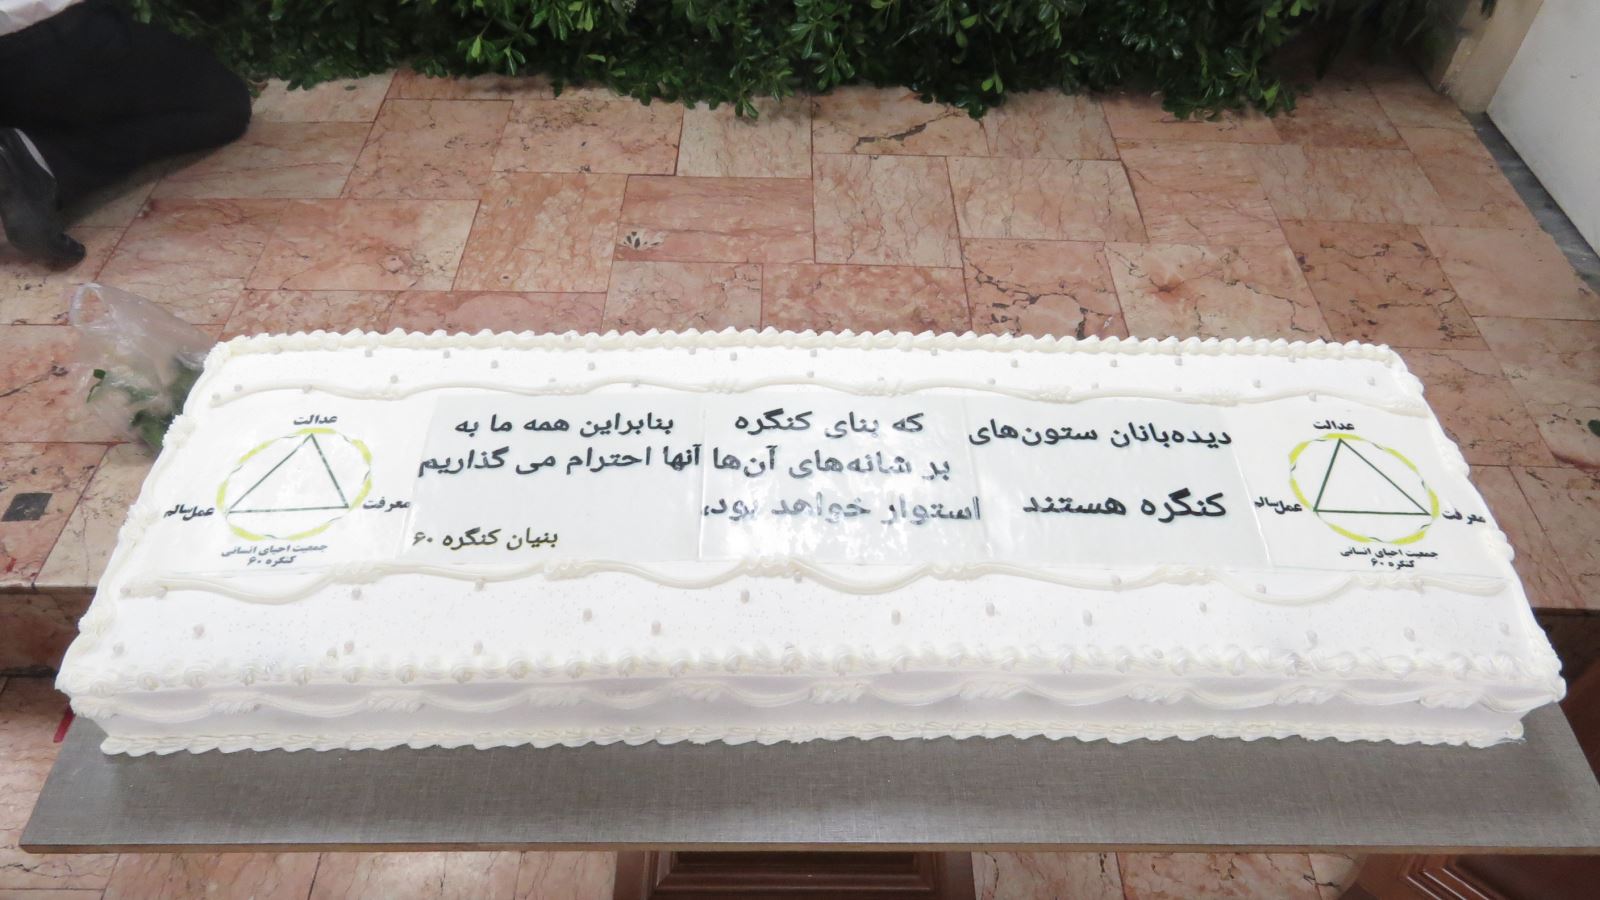 عدالت
معرفت
عمل سالم
جمعیت احیای انسانی
کنگره ۶۰
دیده‌بانان ستون‌های
کنگره هستند
که بنای کنگره
بر شانه‌های آن‌ها
استوار خواهد بود.
بنابراین همه ما به
آنها احترام می گذاریم
بنیان کنگره ۶۰
عدالت
معرفت
عمل سالم
جمعیت احیای انسانی
کنگره ۶۰